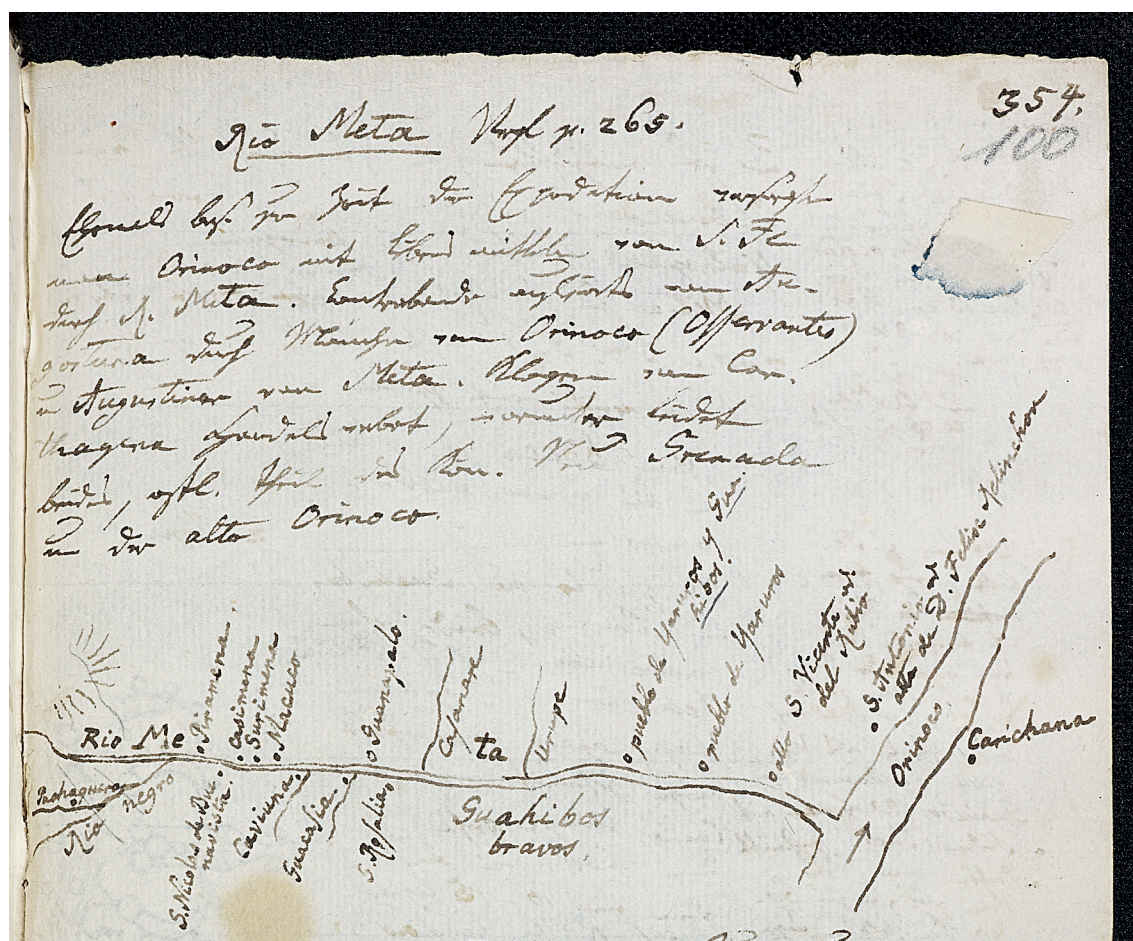 354.
100
Rio Meta Vergl p. 265.
Ehemals bes. zur Zeit der Expedition
man Orinoco mit Lebensmitteln von S. Fe
durch R. Meta. Contrebande von An-
gostura durch Mönche vom Orinoco (Osservantes)
u Augustiner vom Meta. Klagen von Car-
thagena Handels verbot, worunter leidet
beides, östl. Theil des Kön. Neu Grenada
u der alto Orinoco.
Rio Me ta
Pachaquero
Rio negro
Piramena.
Casimena
Surimena
Macuco
Guanapalo.
Casanare
Urupe
pueblo de Yaruros y Gua
hibos.
pueblo de Yaruros
alto S. Vicente de
del Rubio
S. Antonio de
alta de D. Felix Relinchon
Orinoco
Carichana
S. Nicolas de Bue
navista
Caviuna.
Guacasia.
S. Rosalia
Guahibos
bravos.